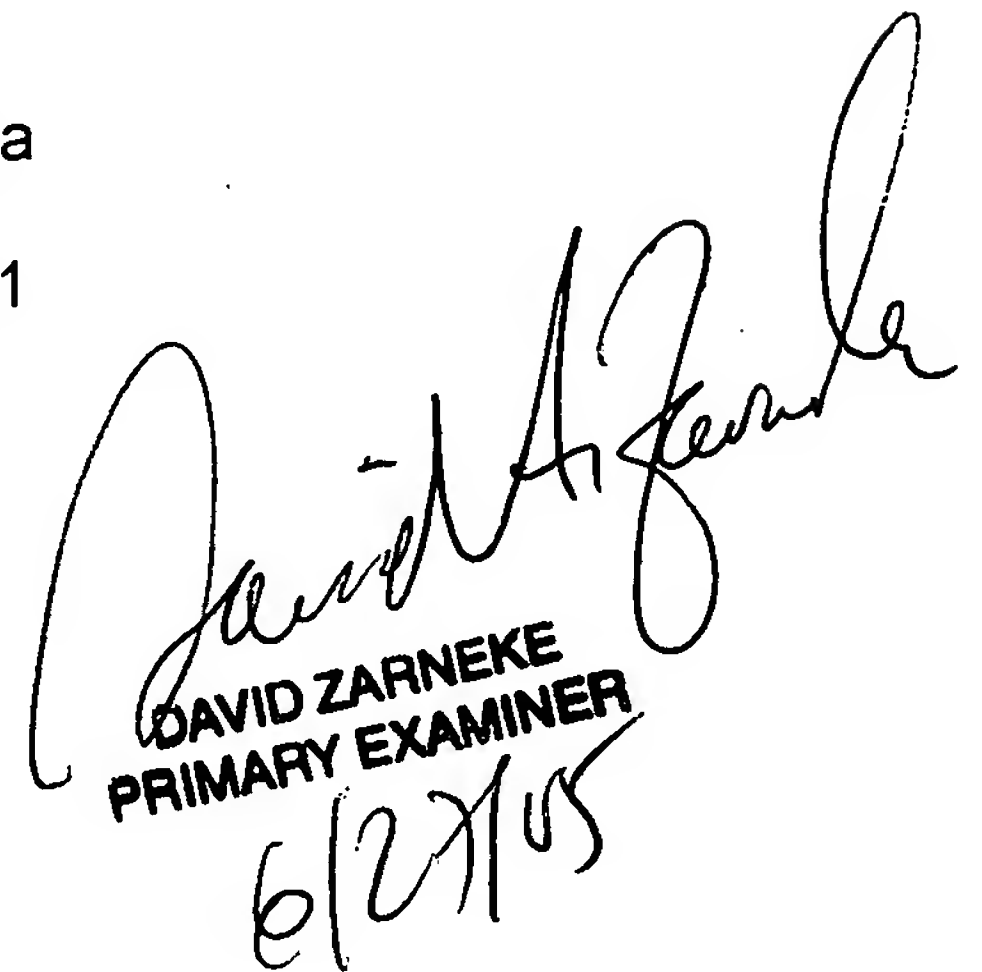 a
1
David A. Zarneke
DAVID ZARNEKE
PRIMARY EXAMINER
6/27/05